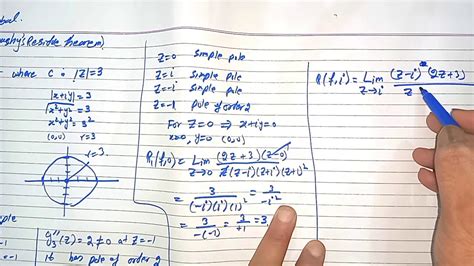 (Cauchy's Residue theorem)
where C : |z| = 3
|x+iy| = 3
√x²+y² = 3
x²+y² = 3²
(0,0) r=3
r=3.
g₃''(z) = 2 ≠ 0 at z=-1
it has pole of order 2
z=0 simple pole
z=i simple pole
z=-i simple pole
z=-1 pole of order 2
For z=0 ⇒ x+iy=0
x=0, y=0 (0,0)
R₁(f,0) = Lim z→0 (2z+3)(z-0) / z(z-i)(z+i)(z+1)²
= 3 / (-i)(i)(1)² = 3 / -i²
= 3 / -(-1) = 3 / +1 = 3
R(f,i) = Lim z→i (z-i)(2z+3) / z